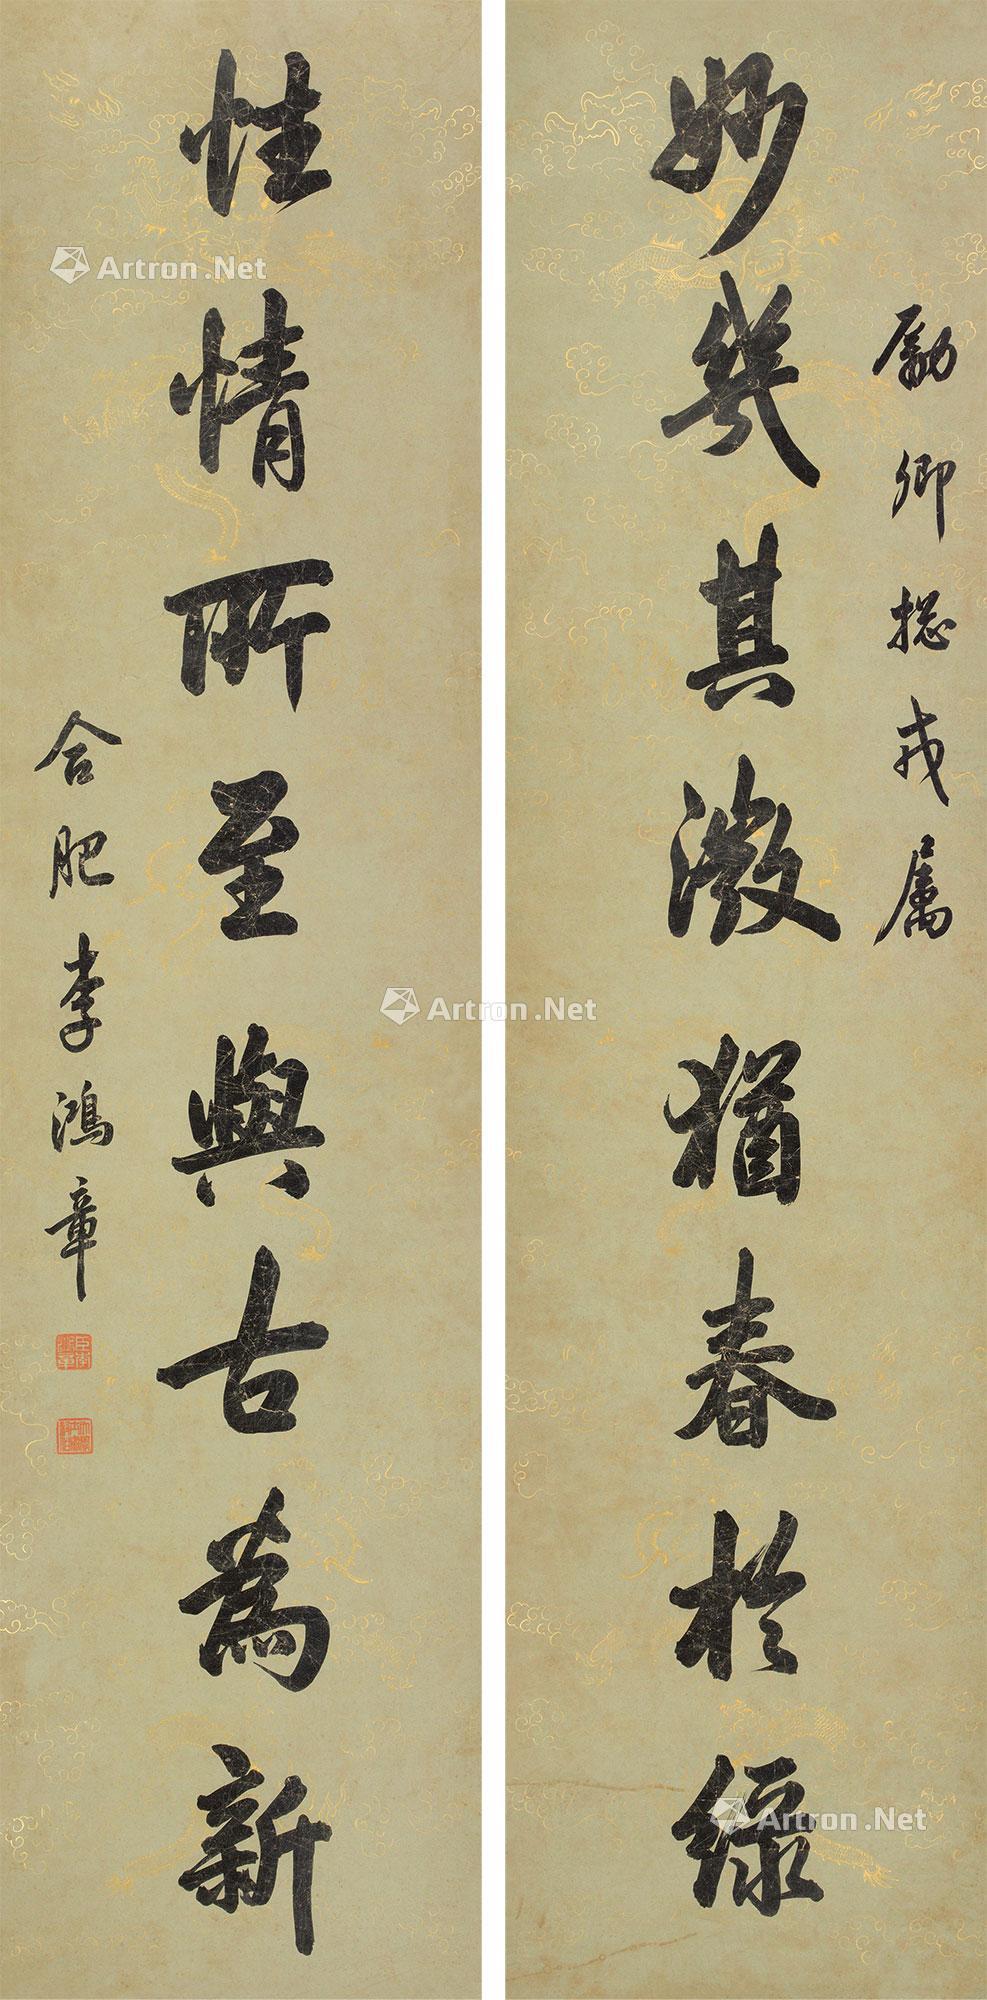 勵卿摠戎属
妙幾其微猶春於綠
性情所至與古為新
合肥李鴻章
Artron.Net
Artron.Net
Artron.Net